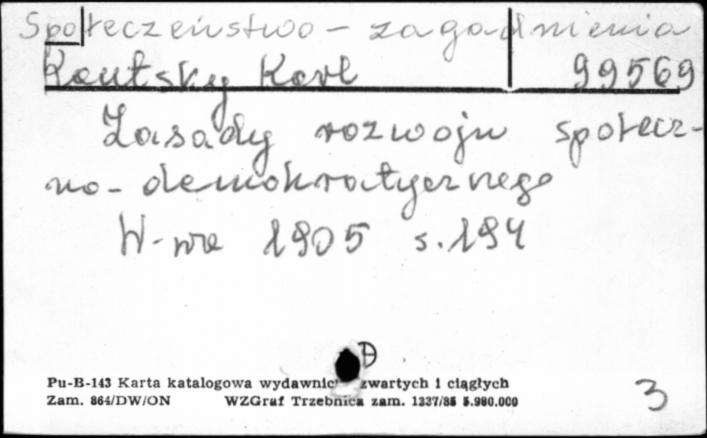 Społeczeństwo - zagadnienia
Kautsky Karl 99569
Zasady rozwoju społecz-
no-demokratycznego
W-wa 1905 s. 194
D
Pu-B-143 Karta katalogowa wydawnic zwartych i ciągłych
Zam. 864/DW/ON WZGraf Trzebnica zam. 1337/85 5.980.000
3